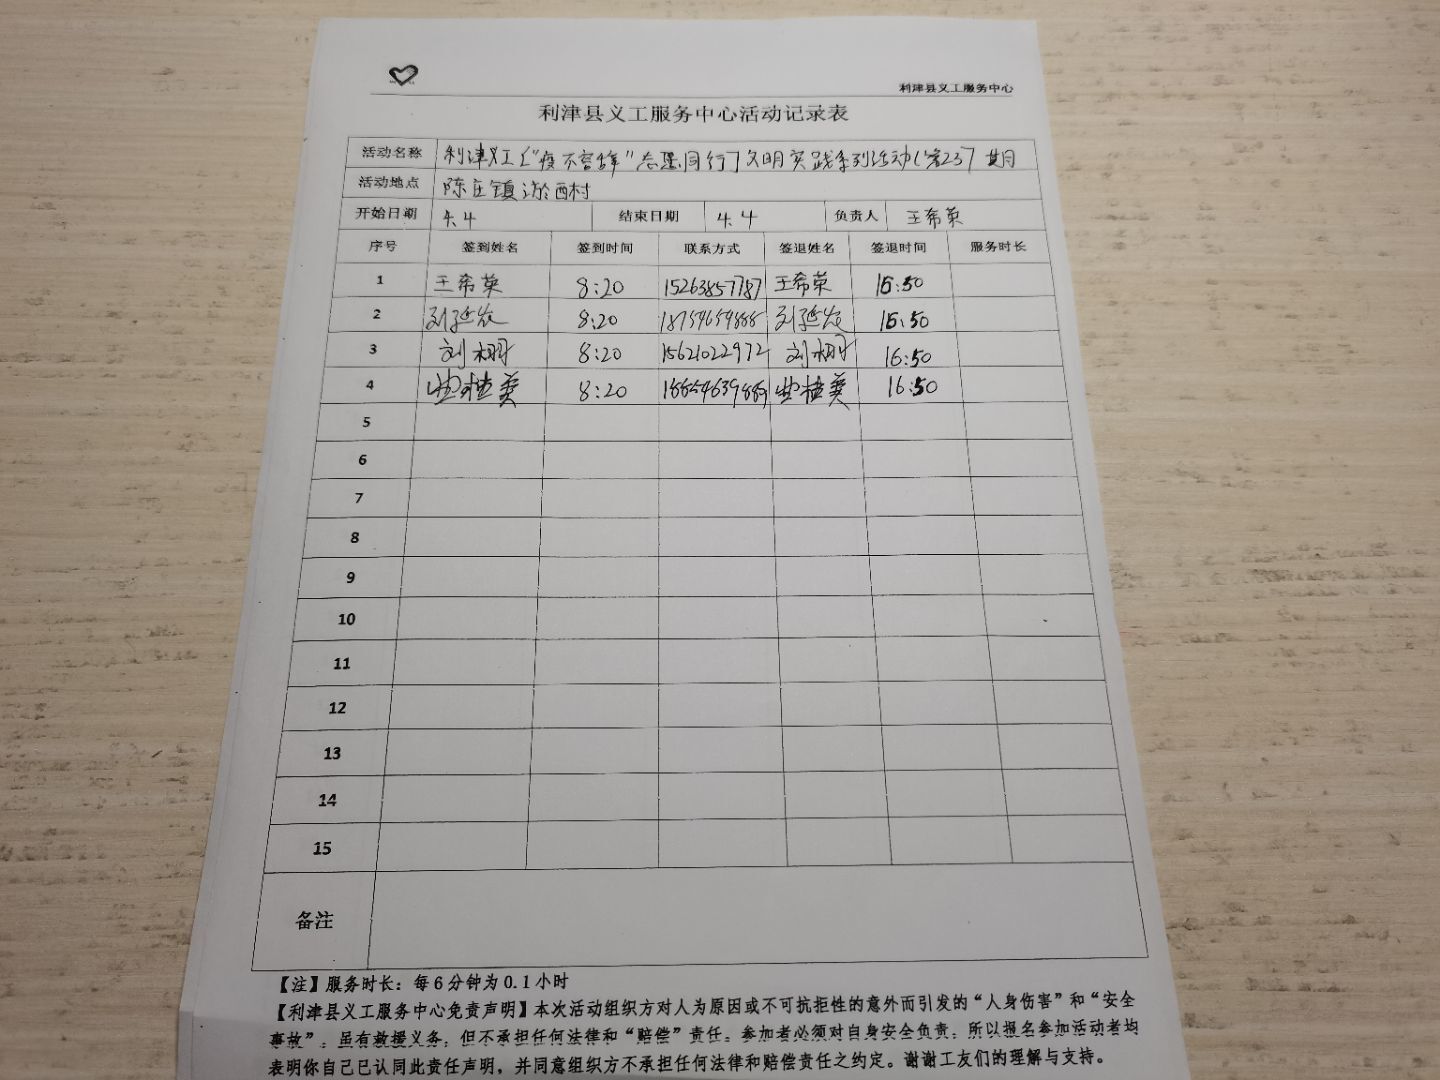 利津县义工服务中心
利津县义工服务中心活动记录表
活动名称 利津义工“疫不容辞”志愿同行 文明实践系列活动(第237期
活动地点 陈庄镇 西村
开始日期 4.4 结束日期 4.4 负责人 王希荣
序号 签到姓名 签到时间 联系方式 签退姓名 签退时间 服务时长
1 王希荣 8:20 15263857787 王希荣 15:50
2 刘延 8:20 18754659888 刘延 15:50
3 刘栩 8:20 15621022972 刘栩 16:50
4 曲桂英 8:20 18854639889 曲桂英 16:50
5
6
7
8
9
10
11
12
13
14
15
备注
【注】服务时长：每6分钟为0.1小时
【利津县义工服务中心免责声明】本次活动组织方对人为原因或不可抗拒性的意外而引发的“人身伤害”和“安全
事故”，虽有救援义务，但不承担任何法律和“赔偿”责任。参加者必须对自身安全负责，所以报名参加活动者均
表明你自己已认同此责任声明，并同意组织方不承担任何法律和赔偿责任之约定。谢谢工友们的理解与支持。